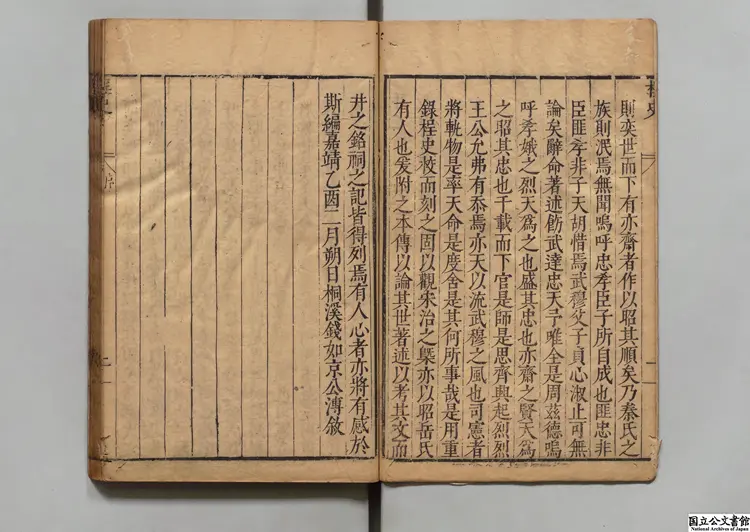 則奕世而下有亦齋者作以昭其順矣乃秦氏之
族則泯焉無聞嗚呼忠孝臣子所自成也匪忠非
臣匪孝非子天胡惜焉武穆父子貞心淑止可無
論矣辭命著述飭武達忠天予唯全是周茲德嗚
呼孝娥之烈天爲之也盛其忠也亦齋之賢天爲
之昭其忠也千載而下官是師是思齊興起烈烈
王公允弗有忝焉亦天以流武穆之風也司憲者
將軌物是率天命是度舍是其何所事哉是用重
錄桯史校而刻之固以觀宋治之槩亦以昭岳氏
有人也爰附之本傳以論其世著述以考其文而
井之銘祠之記皆得列焉有人心者亦將有感於
斯編嘉靖乙酉二月朔日桐溪錢如京公溥敘
桯史
序
一
国立公文書館
National Archives of Japan